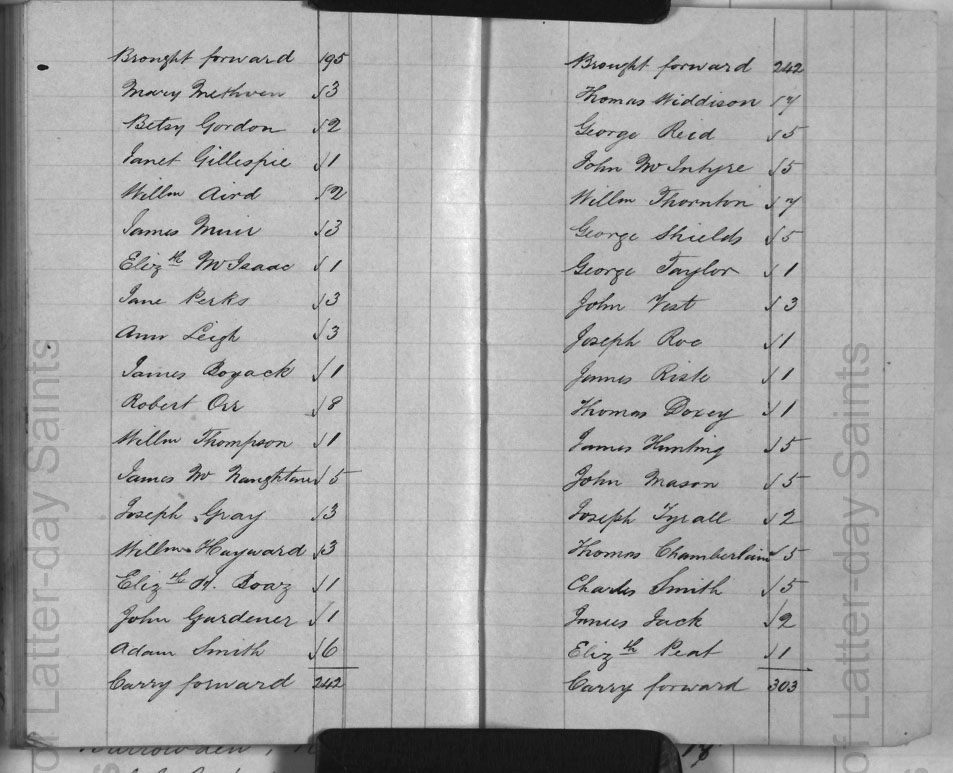 Brought forward 195
Mary Methven √3
Betsy Gordon √2
Janet Gillespie √1
Willm Aird √2
James Muir √3
Elizth McIsaac √1
Jane Perks √3
Ann Leigh √3
James Boyack √1
Robert Orr √8
Willm Thompson √1
James McNaughton √5
Joseph Gray √3
Willm Hayward √3
Elizth H. Boaz √1
John Gardener √1
Adam Smith √6
Carry forward 242
Brought forward 242
Thomas Widdison √7
George Reid √5
John McIntyre √5
Willm Thornton √7
George Shields √5
George Taylor √1
John Vest √3
Joseph Roe √1
James Risk √1
Thomas Doxey √1
James Hunting √5
John Mason √5
Joseph Tyrall √2
Thomas Chamberlain √5
Charles Smith √5
James Jack √2
Elizth Peat √1
Carry forward 303
of Latter-day Saints
of Latter-day Saints